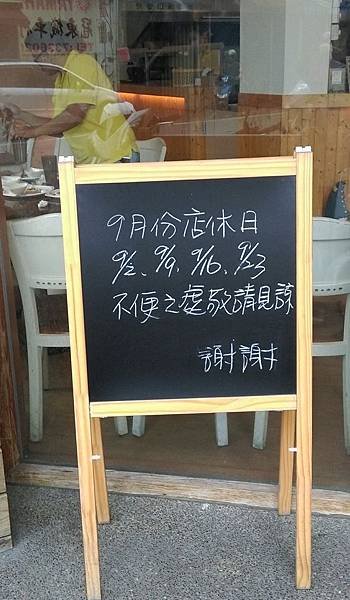 9月份店休日
9/2、9/9、9/16、9/23
不便之處敬請見諒
謝謝